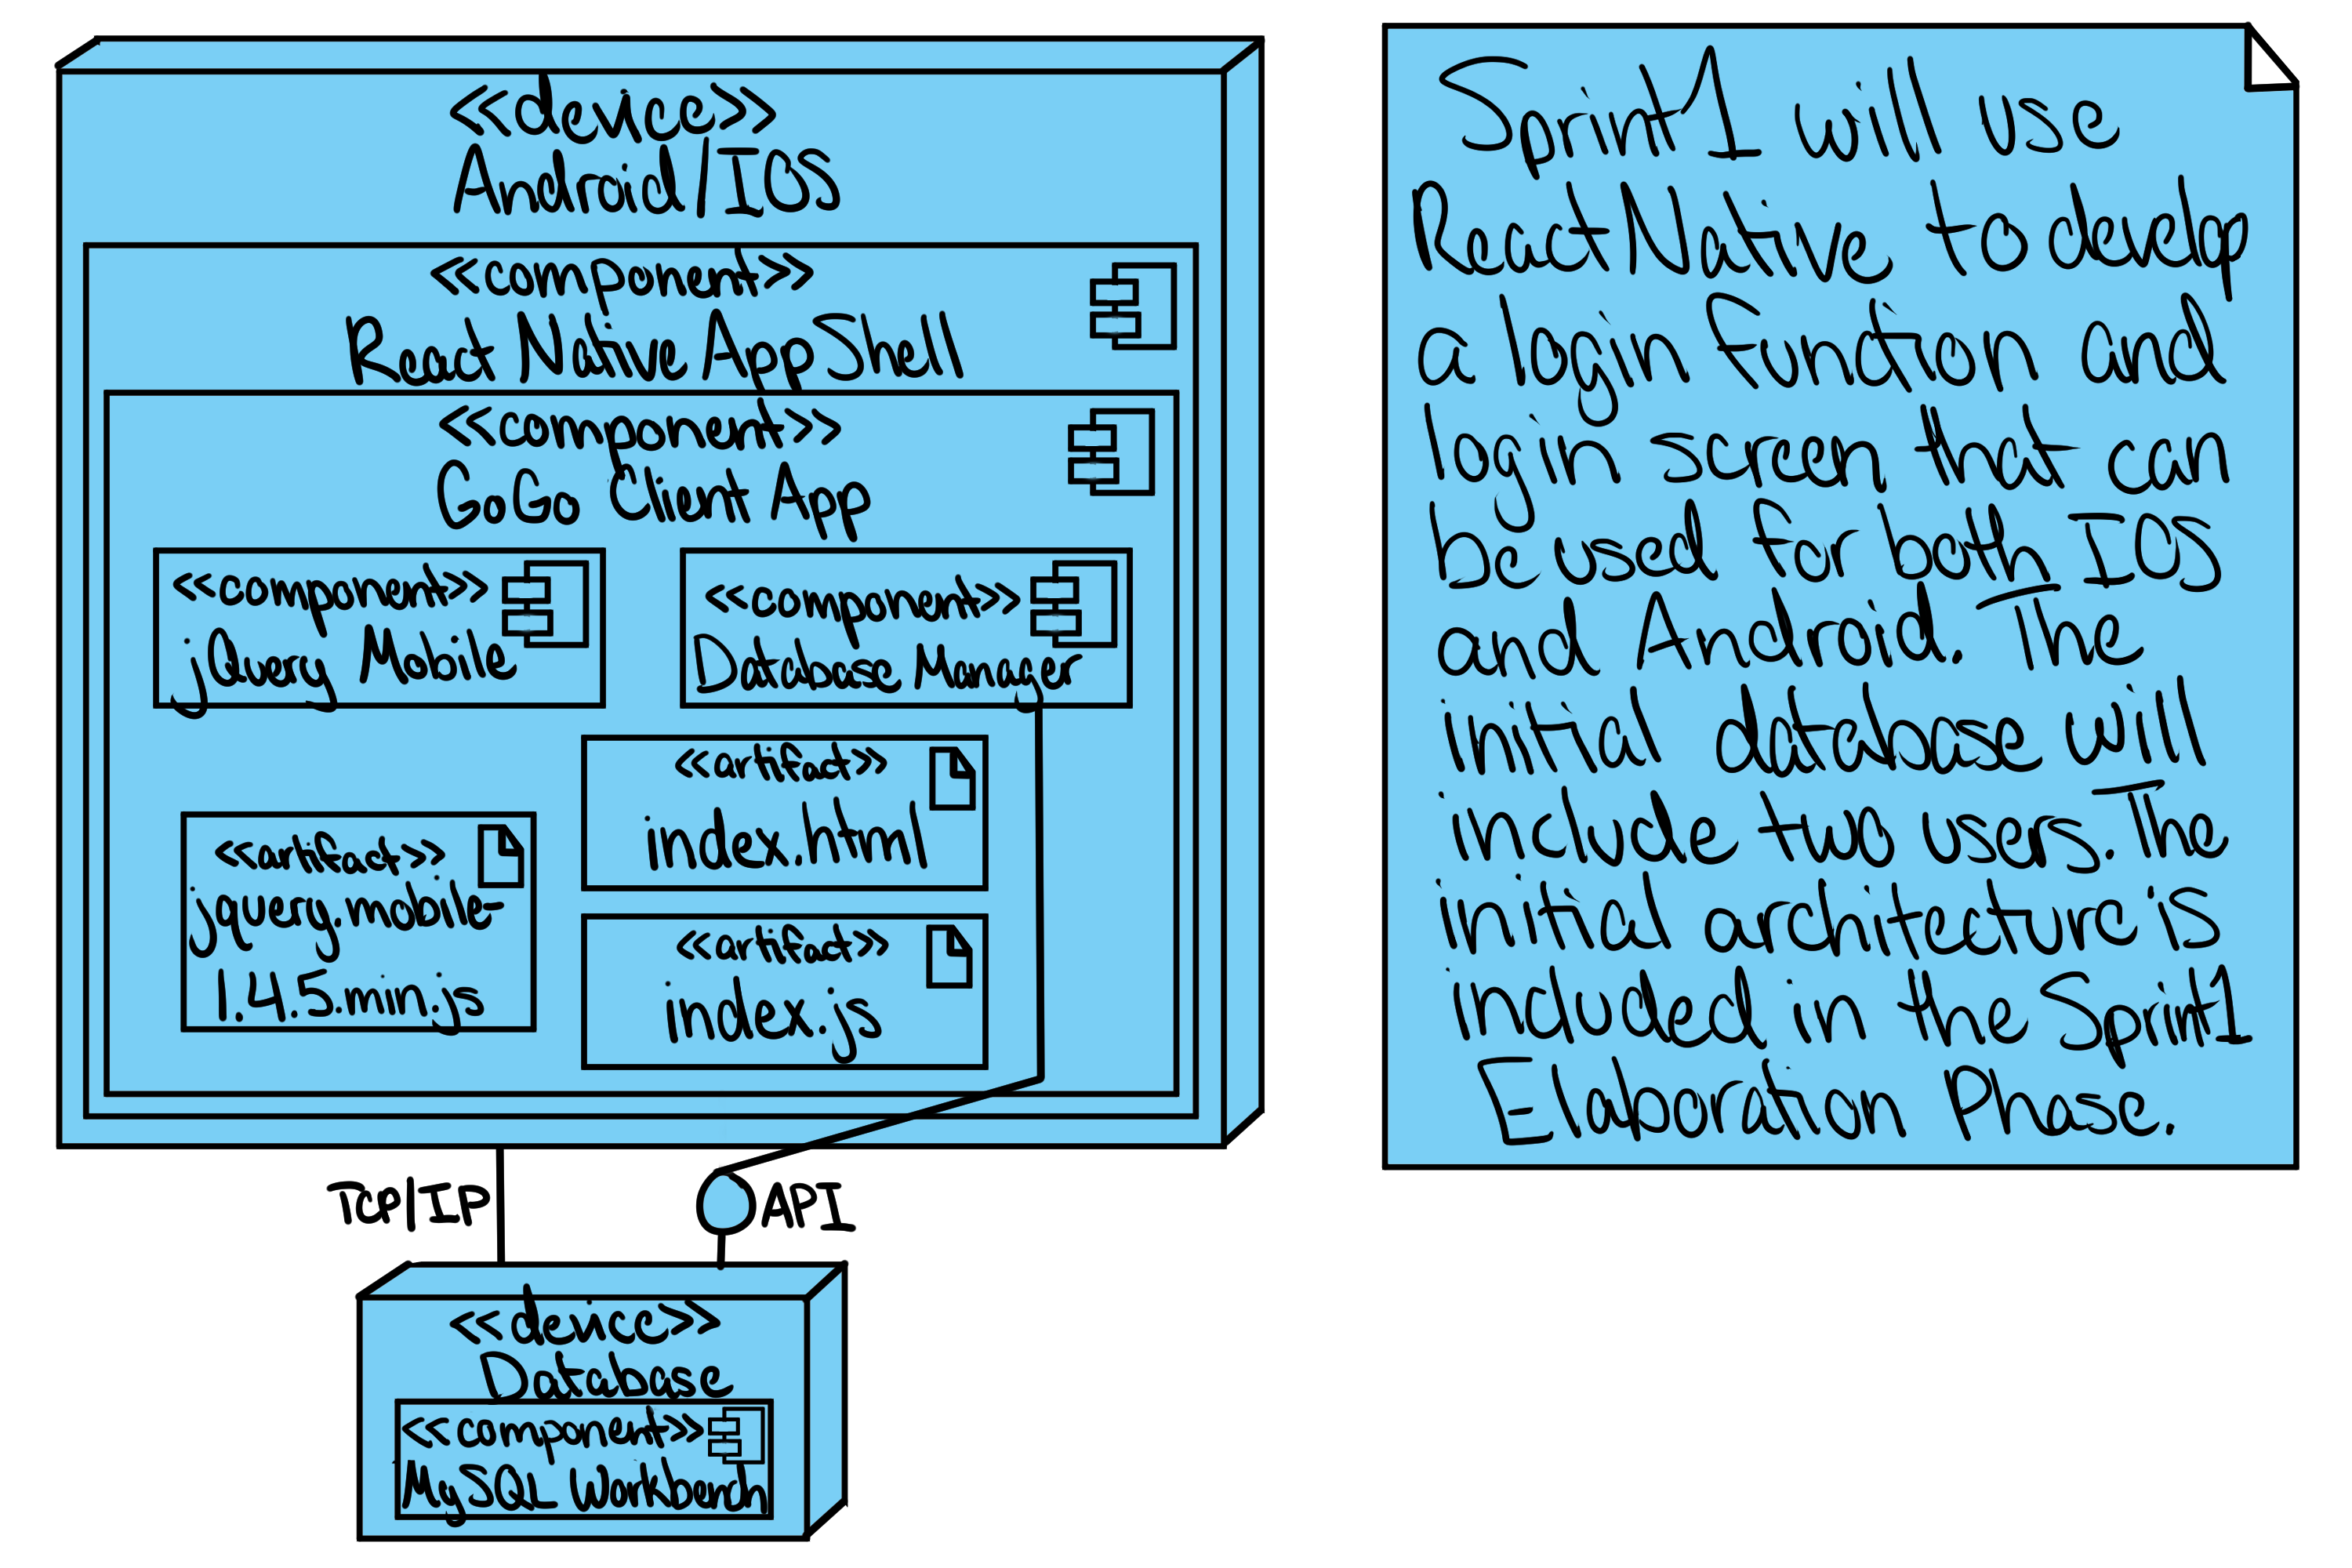 <<device>>
Android/IOS
<<component>>
React Native App Shell
<<component>>
GoGo Client App
<<component>>
jQuery Mobile
<<component>>
Database Manager
<<artifact>>
index.html
<<artifact>>
jquery.mobile-
1.4.5.min.js
<<artifact>>
index.js
TCP/IP
API
<<device>>
Database
<<component>>
MySQL Workbench
Sprint1 will use
React Native to develop
a login function and
login screen that can
be used for both IOS
and Android. The
initial database will
include two users. The
initial architecture is
included in the Sprint1
Elaboration Phase.